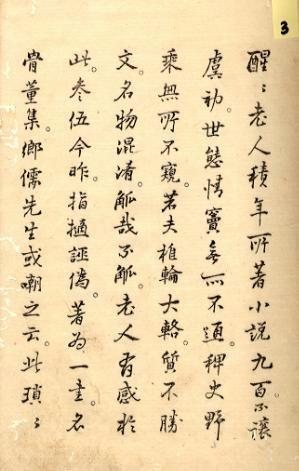 3
醒〻老人積年所著小説九百。不讓
虞初。世態情竇無不通。稗史野
乘無所不窺。若夫椎輪大輅。質不勝
文。名物混淆。觚哉不觚。老人有感於
此。叅伍今昨。指擿誣偽。著為一書。名
骨董集。鄉儒先生或嘲之云。此瑣〻